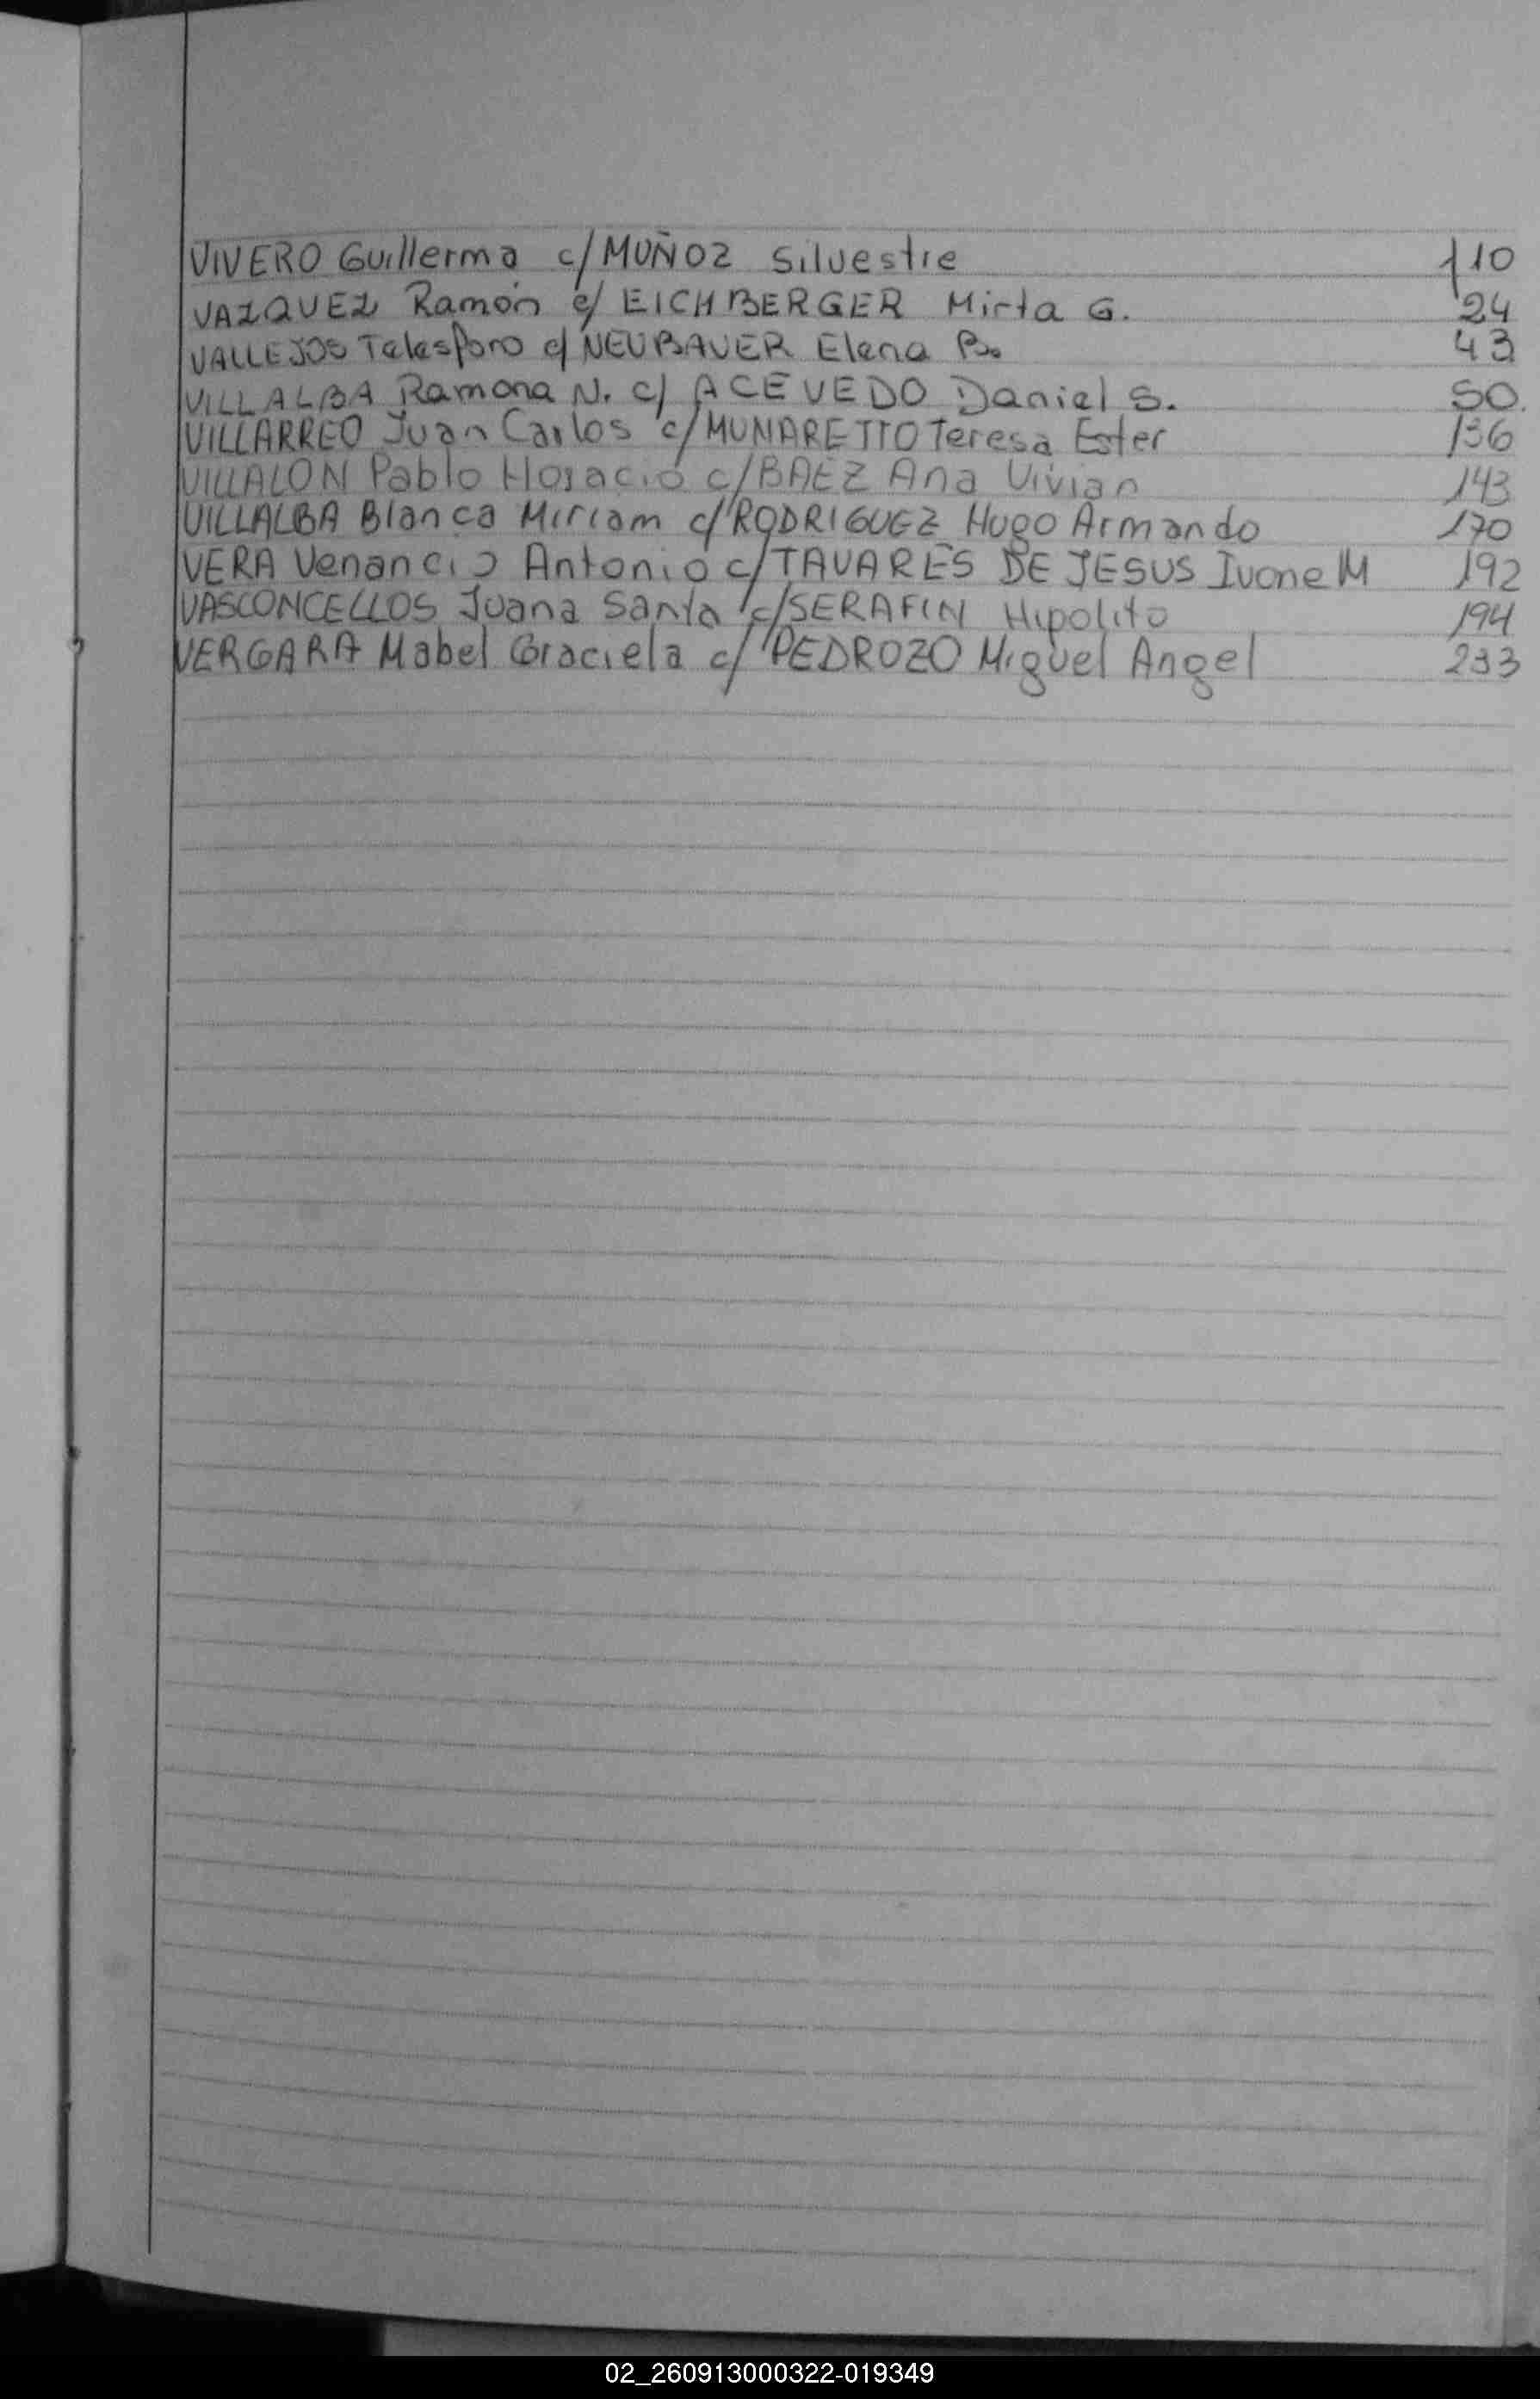 VIVERO Guillerma c/ MUÑOZ Silvestre 110
VAZQUEZ Ramón c/ EICHBERGER Mirta G. 24
VALLEJOS Telesforo c/ NEUBAUER Elena B. 43
VILLALBA Ramona N. c/ ACEVEDO Daniel S. 50.
VILLARREO Juan Carlos c/ MUNARETTO Teresa Ester 136
VILLALON Pablo Horacio c/ BAEZ Ana Vivian 143
VILLALBA Blanca Miriam c/ RODRIGUEZ Hugo Armando 170
VERA Venancio Antonio c/ TAVARES DE JESUS Ivone M 192
VASCONCELLOS Juana Santa c/ SERAFIN Hipolito 194
VERGARA Mabel Graciela c/ PEDROZO Miguel Angel 233
02_260913000322-019349